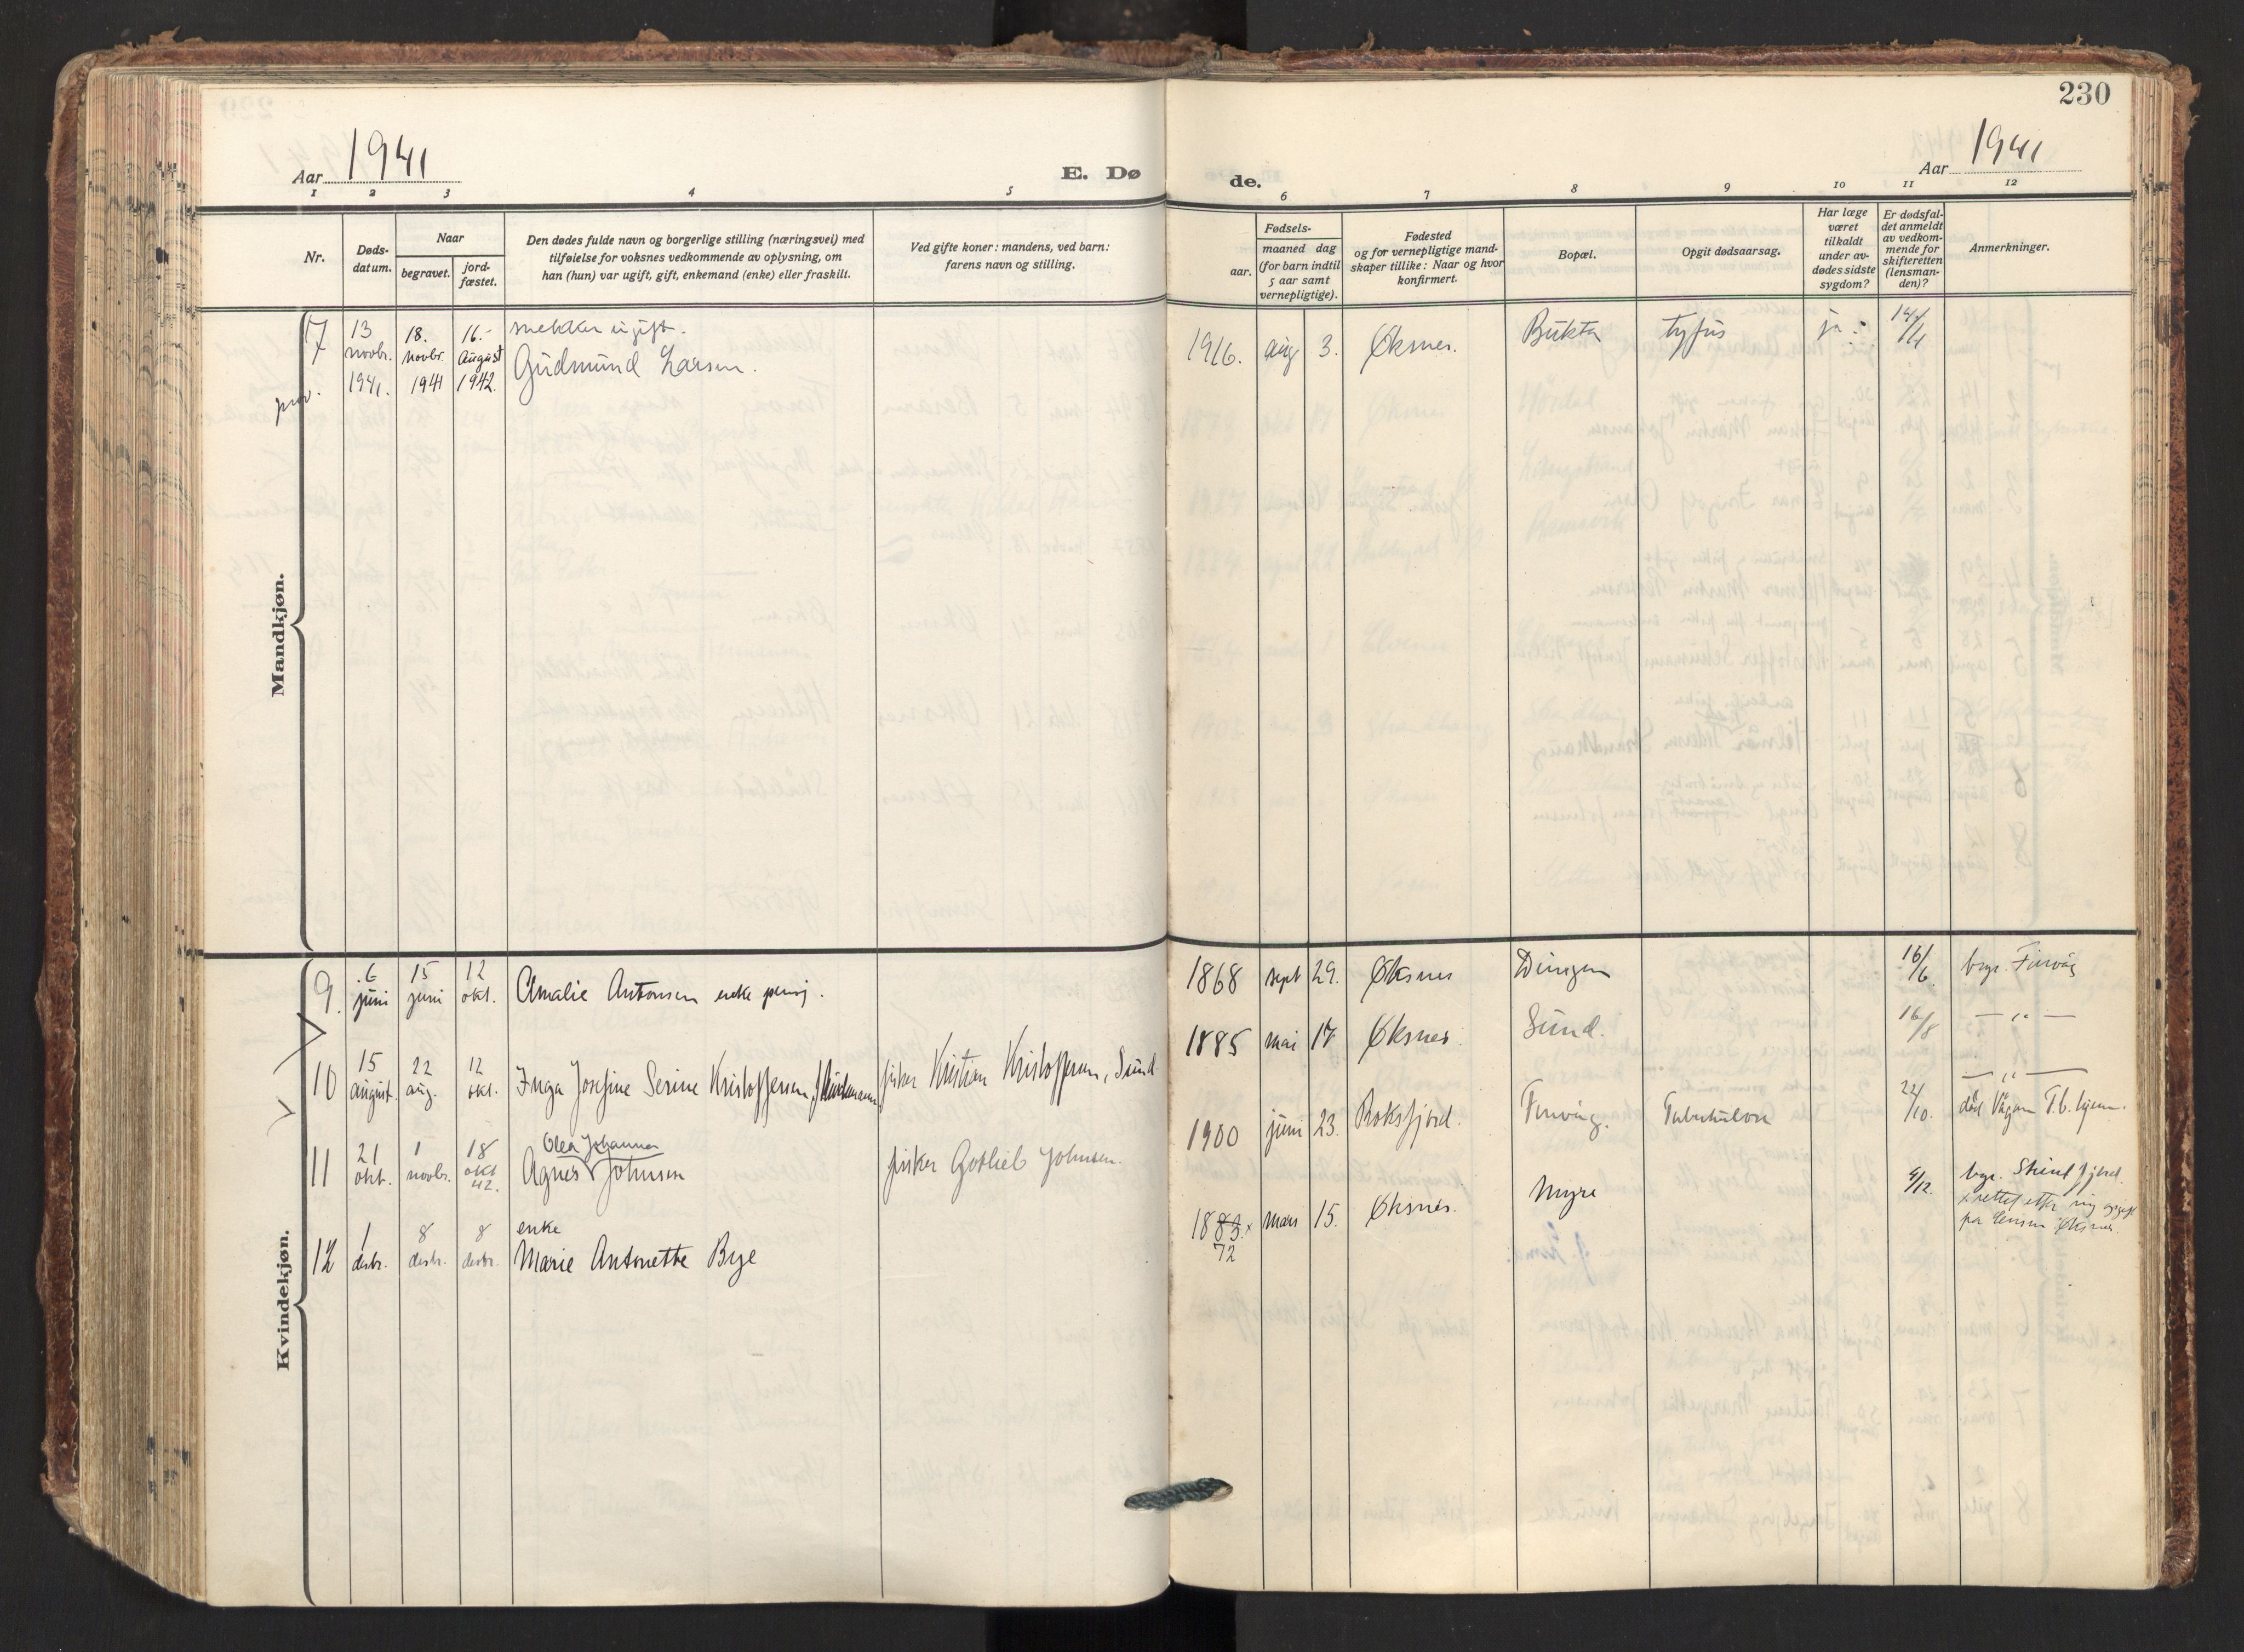 230
Aar 1941
E. Dø
de.
Aar 1941
1 2 3 4 5 6 7 8 9 10 11 12
Nr.
Døds-
datum.
Naar
begravet.
jord-
fæstet.
Den dødes fulde navn og borgerlige stilling (næringsvei) med
tilføielse for voksnes vedkommende av oplysning, om
han (hun) var ugift, gift, enkemand (enke) eller fraskilt.
Ved gifte koner: mandens, ved barn:
farens navn og stilling.
Fødsels-
aar.
maaned dag
(for barn indtil
5 aar samt
vernepligtige).
Fødested
og for vernepligtige mand-
skaper tillike: Naar og hvor
konfirmert.
Bopæl.
Opgit dødsaarsag.
Har læge
været
tilkaldt
under av-
dødes sidste
sygdom?
Er dødsfal-
det anmeldt
av vedkom-
mende for
skifteretten
(lensman-
den)?
Anmerkninger.
Mandkjøn.
7
13 novbr. 1941.
18. novbr. 1941
16.- August 1942.
snekker ugift.
Gudmund Larsen.
1916. aug 3. Øksnes. Bukta tyfus ja
Kvindekjøn.
9. 6 juni 15 juni 12 okt. Amalie Antonsen enke pensj.
1868 sept 29. Øksnes Dyngen 16/6. begr. Tinvåg
10 15 august. 22 aug. 12 okt. Inga Josefine Serine Kristoffersen, fisker Kristian Kristoffersen, Sund
1885 mai 17 Øksnes. Sund. 16/8 — " —
11 21 okt. 1 novbr. 18 okt 42. Olea Johanna
Agnes Johnsen fisker Gotlieb Johnsen.
1900 juni 23. Roksfjord. Tinvåg. Tuberkulose 22/10. — " —
død Vågan T.b. hjem.
12 1 desbr. 8 desbr. 8 desbr. enke
Marie Antonette Bye
1883 x mars 15. Øksnes. Myre 4/12. begr.
72
x rettet efter ny opgift
fra lensm Øksnes.